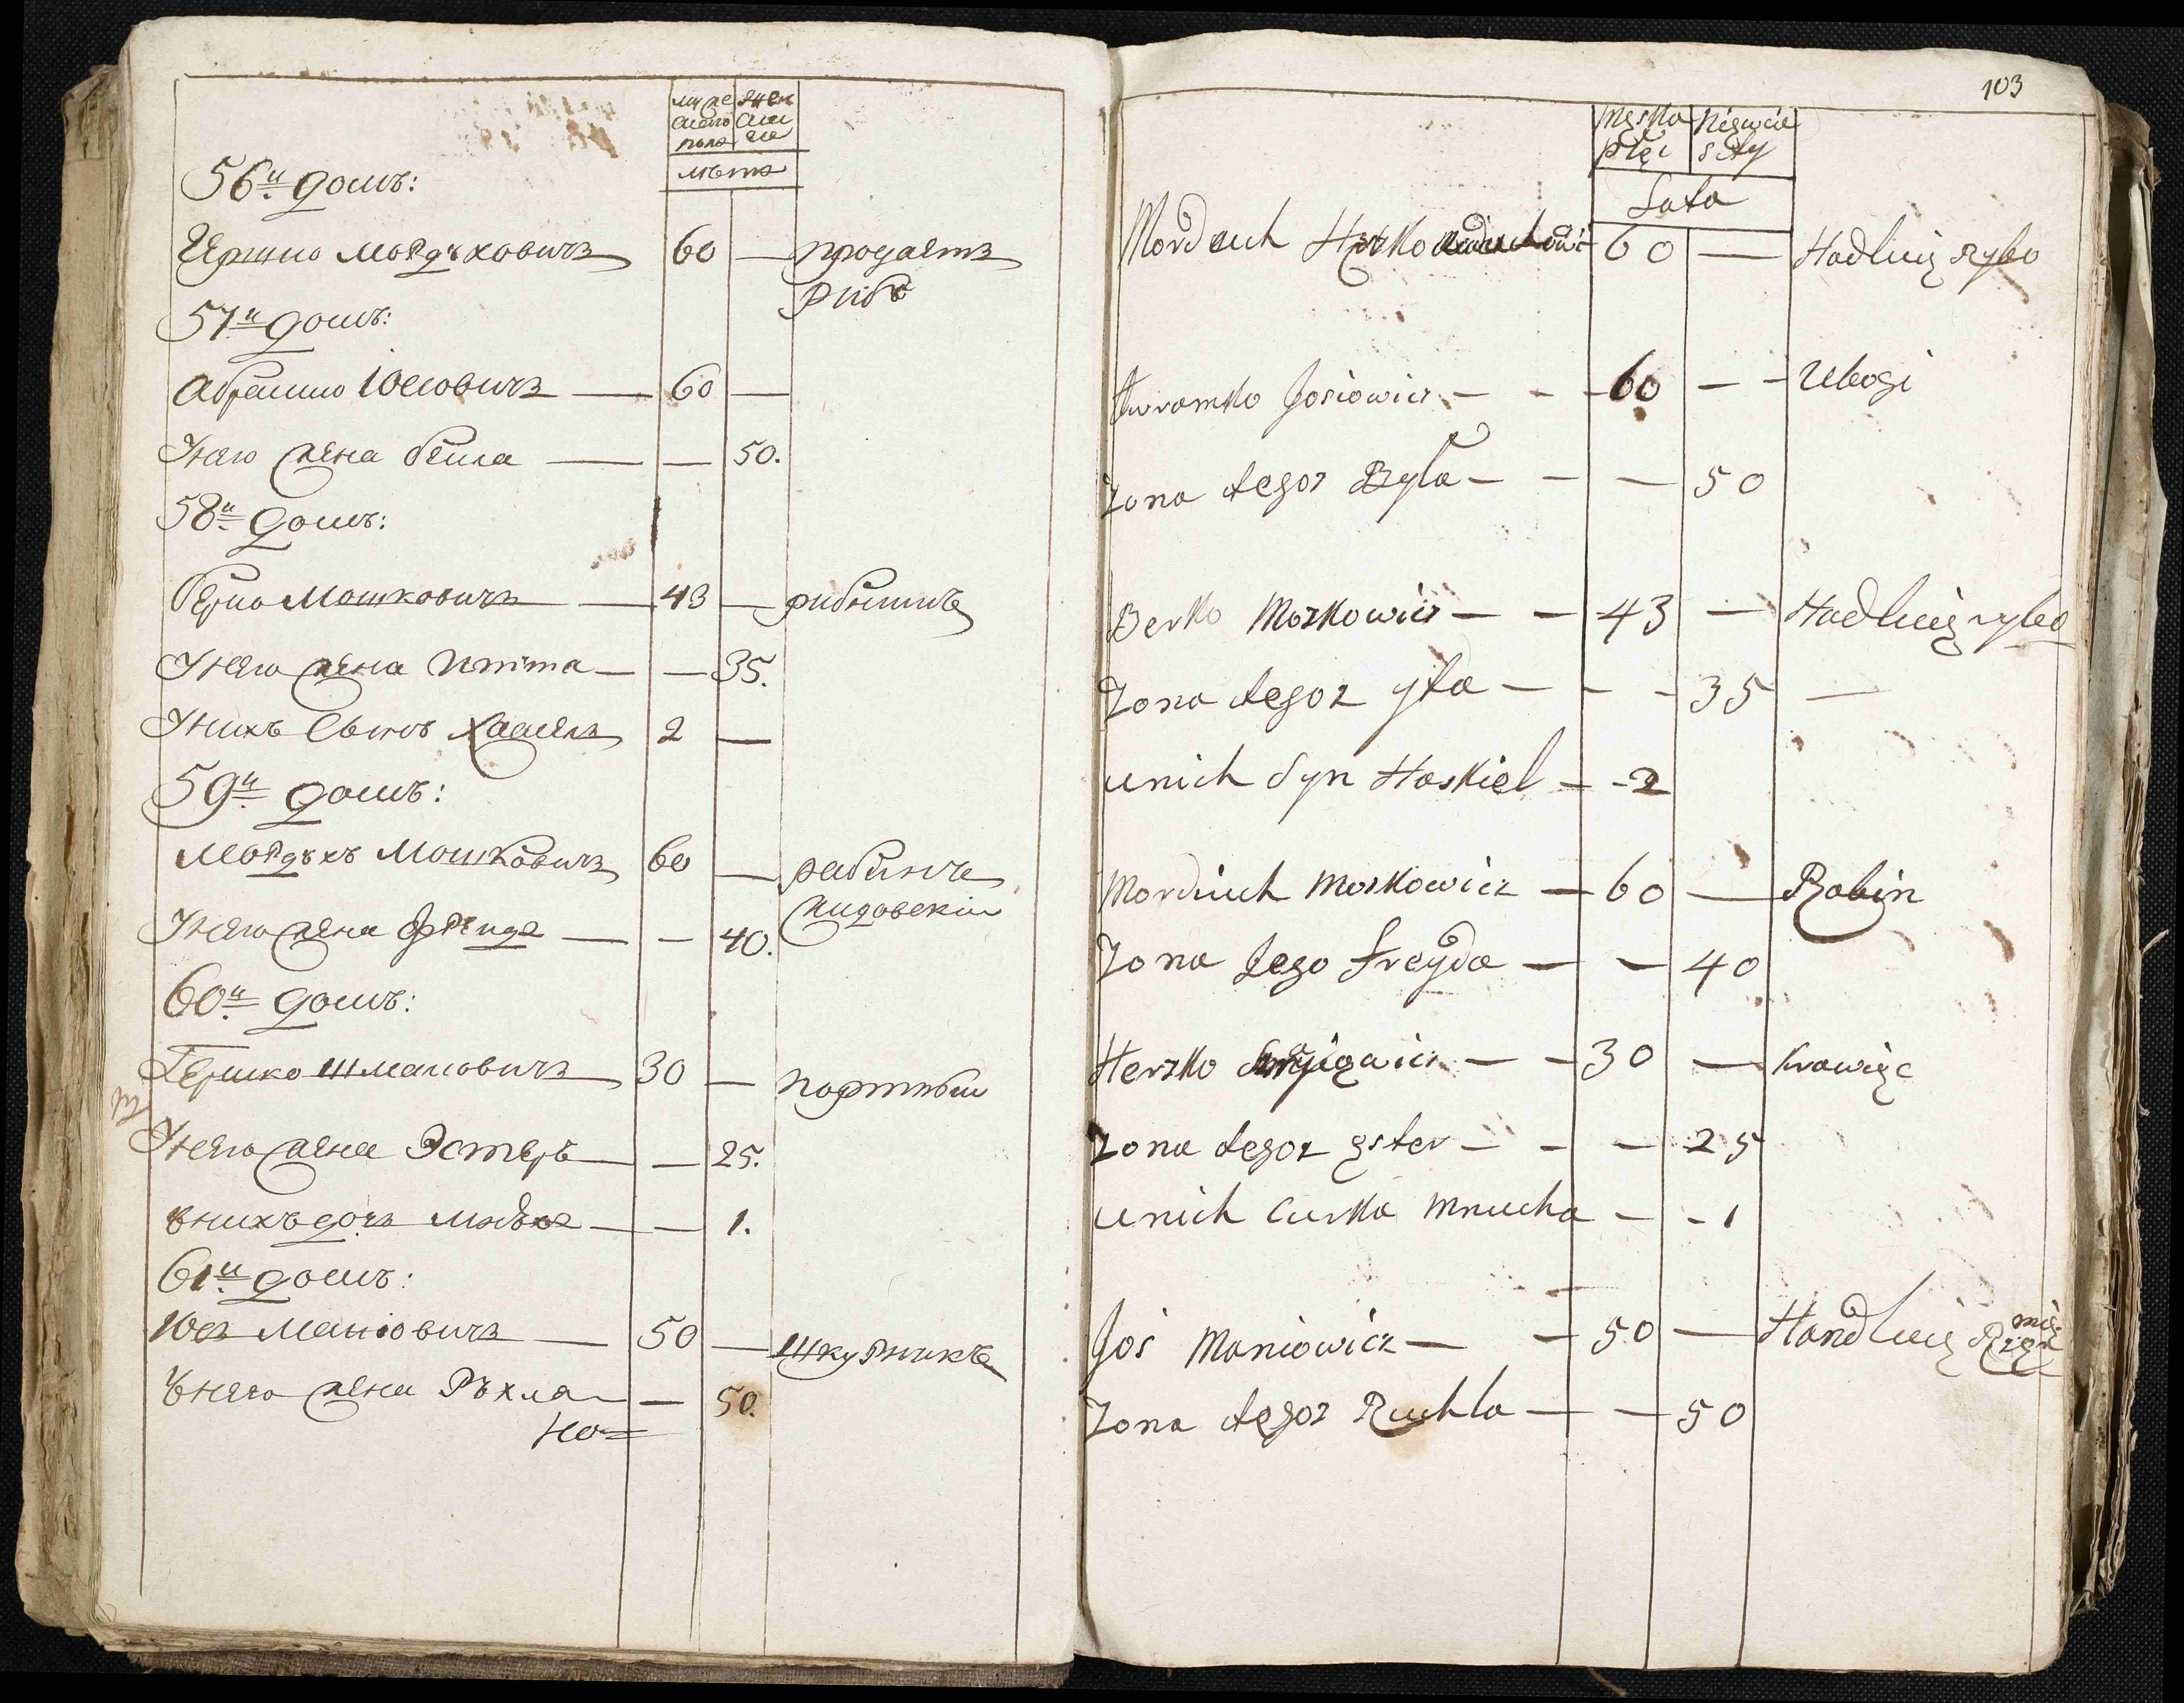 муже
ского
пола
жен
ски
лѣта
56й домъ:
Гершко Мордуховичъ 60 — продаетъ
рибу
57й домъ:
Абрамко Іосіовичъ — 60 —
У него жена Бейла — — 50.
58й домъ:
Берко Мошковичъ — 43 — рибникъ
У него жена Итта — — 35.
У нихъ сынъ Хаскель 2 —
59й домъ:
Мордухъ Мошковичъ 60 — рабинъ
жидовскій
У него жена Фрейда — — 40.
60й домъ:
Гершко Шмаиовичъ 30 — портный
У него жена Эстеръ — — 25.
У нихъ дочь — — 1.
61й домъ:
Іосъ Маніовичъ — 50 — шкурникъ
У него жена Рухла — 50.
103
Męska
płci
Niewia
sty
Lata
Morduch Herszko 60 — Hadluię rybo
Awramko Josiowicz — - - 60 — - Ubogi
Zona tegoz Byla — - — 50
Berko Moszkowicz — — 43 — Hadluię rybo
Zona tegoz yta — - - 35 —
unich Syn Haskiel — - 2
Morduch Moszkowicz — 60 — Rabin
Zona Jego Freyda — — 40
Herszko — - 30 — Krawięc
Zona tegoz Ester — - — 25
unich Curka Mnucha — - 1
Jos Maniowicz — - 50 — Handluię
Zona tegoz Ruchla — — 50